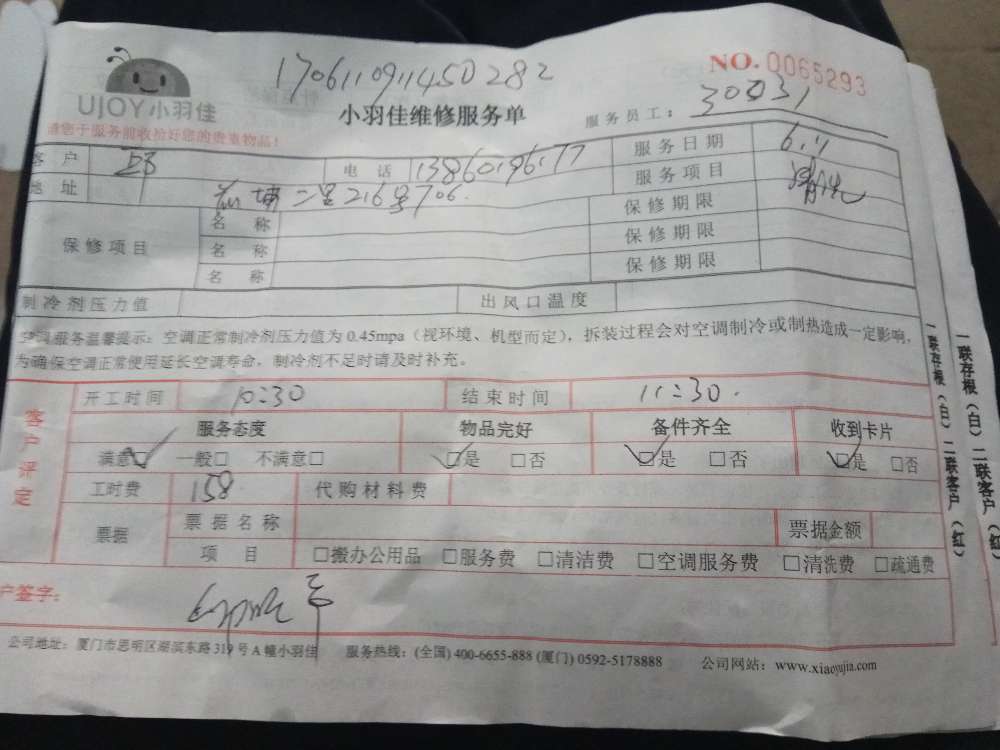 170611091145028​2
NO.0065293
UJOY小羽佳
小羽佳维修服务单
服务员工: 30031
请您于服务前收拾好您的贵重物品!
客户 邱 电话 13860196177 服务日期 6.11
地址 二里216号706. 服务项目 清洗
保修项目 名称 保修期限
名称 保修期限
名称 保修期限
制冷剂压力值 出风口温度
空调服务温馨提示:空调正常制冷剂压力值为0.45mpa(视环境、机型而定),拆装过程会对空调制冷或制热造成一定影响,
为确保空调正常使用延长空调寿命,制冷剂不足时请及时补充。
客户评定
开工时间 10:30 结束时间 11:30.
服务态度 物品完好 备件齐全 收到卡片
满意☑ 一般□ 不满意□ ☑是 □否 ☑是 □否 ☑是 □否
工时费 158 代购材料费
票据 票据名称 票据金额
项目 □搬办公用品 □服务费 □清洁费 □空调服务费 □清洗费 □疏通费
户签字:
公司地址:厦门市思明区湖滨东路319号A幢小羽佳 服务热线:(全国) 400-6655-888 (厦门) 0592-5178888 公司网站:www.xiaoyujia.com
一联存根(白) 二联客户(红)
一联存根(白) 二联客户(红)